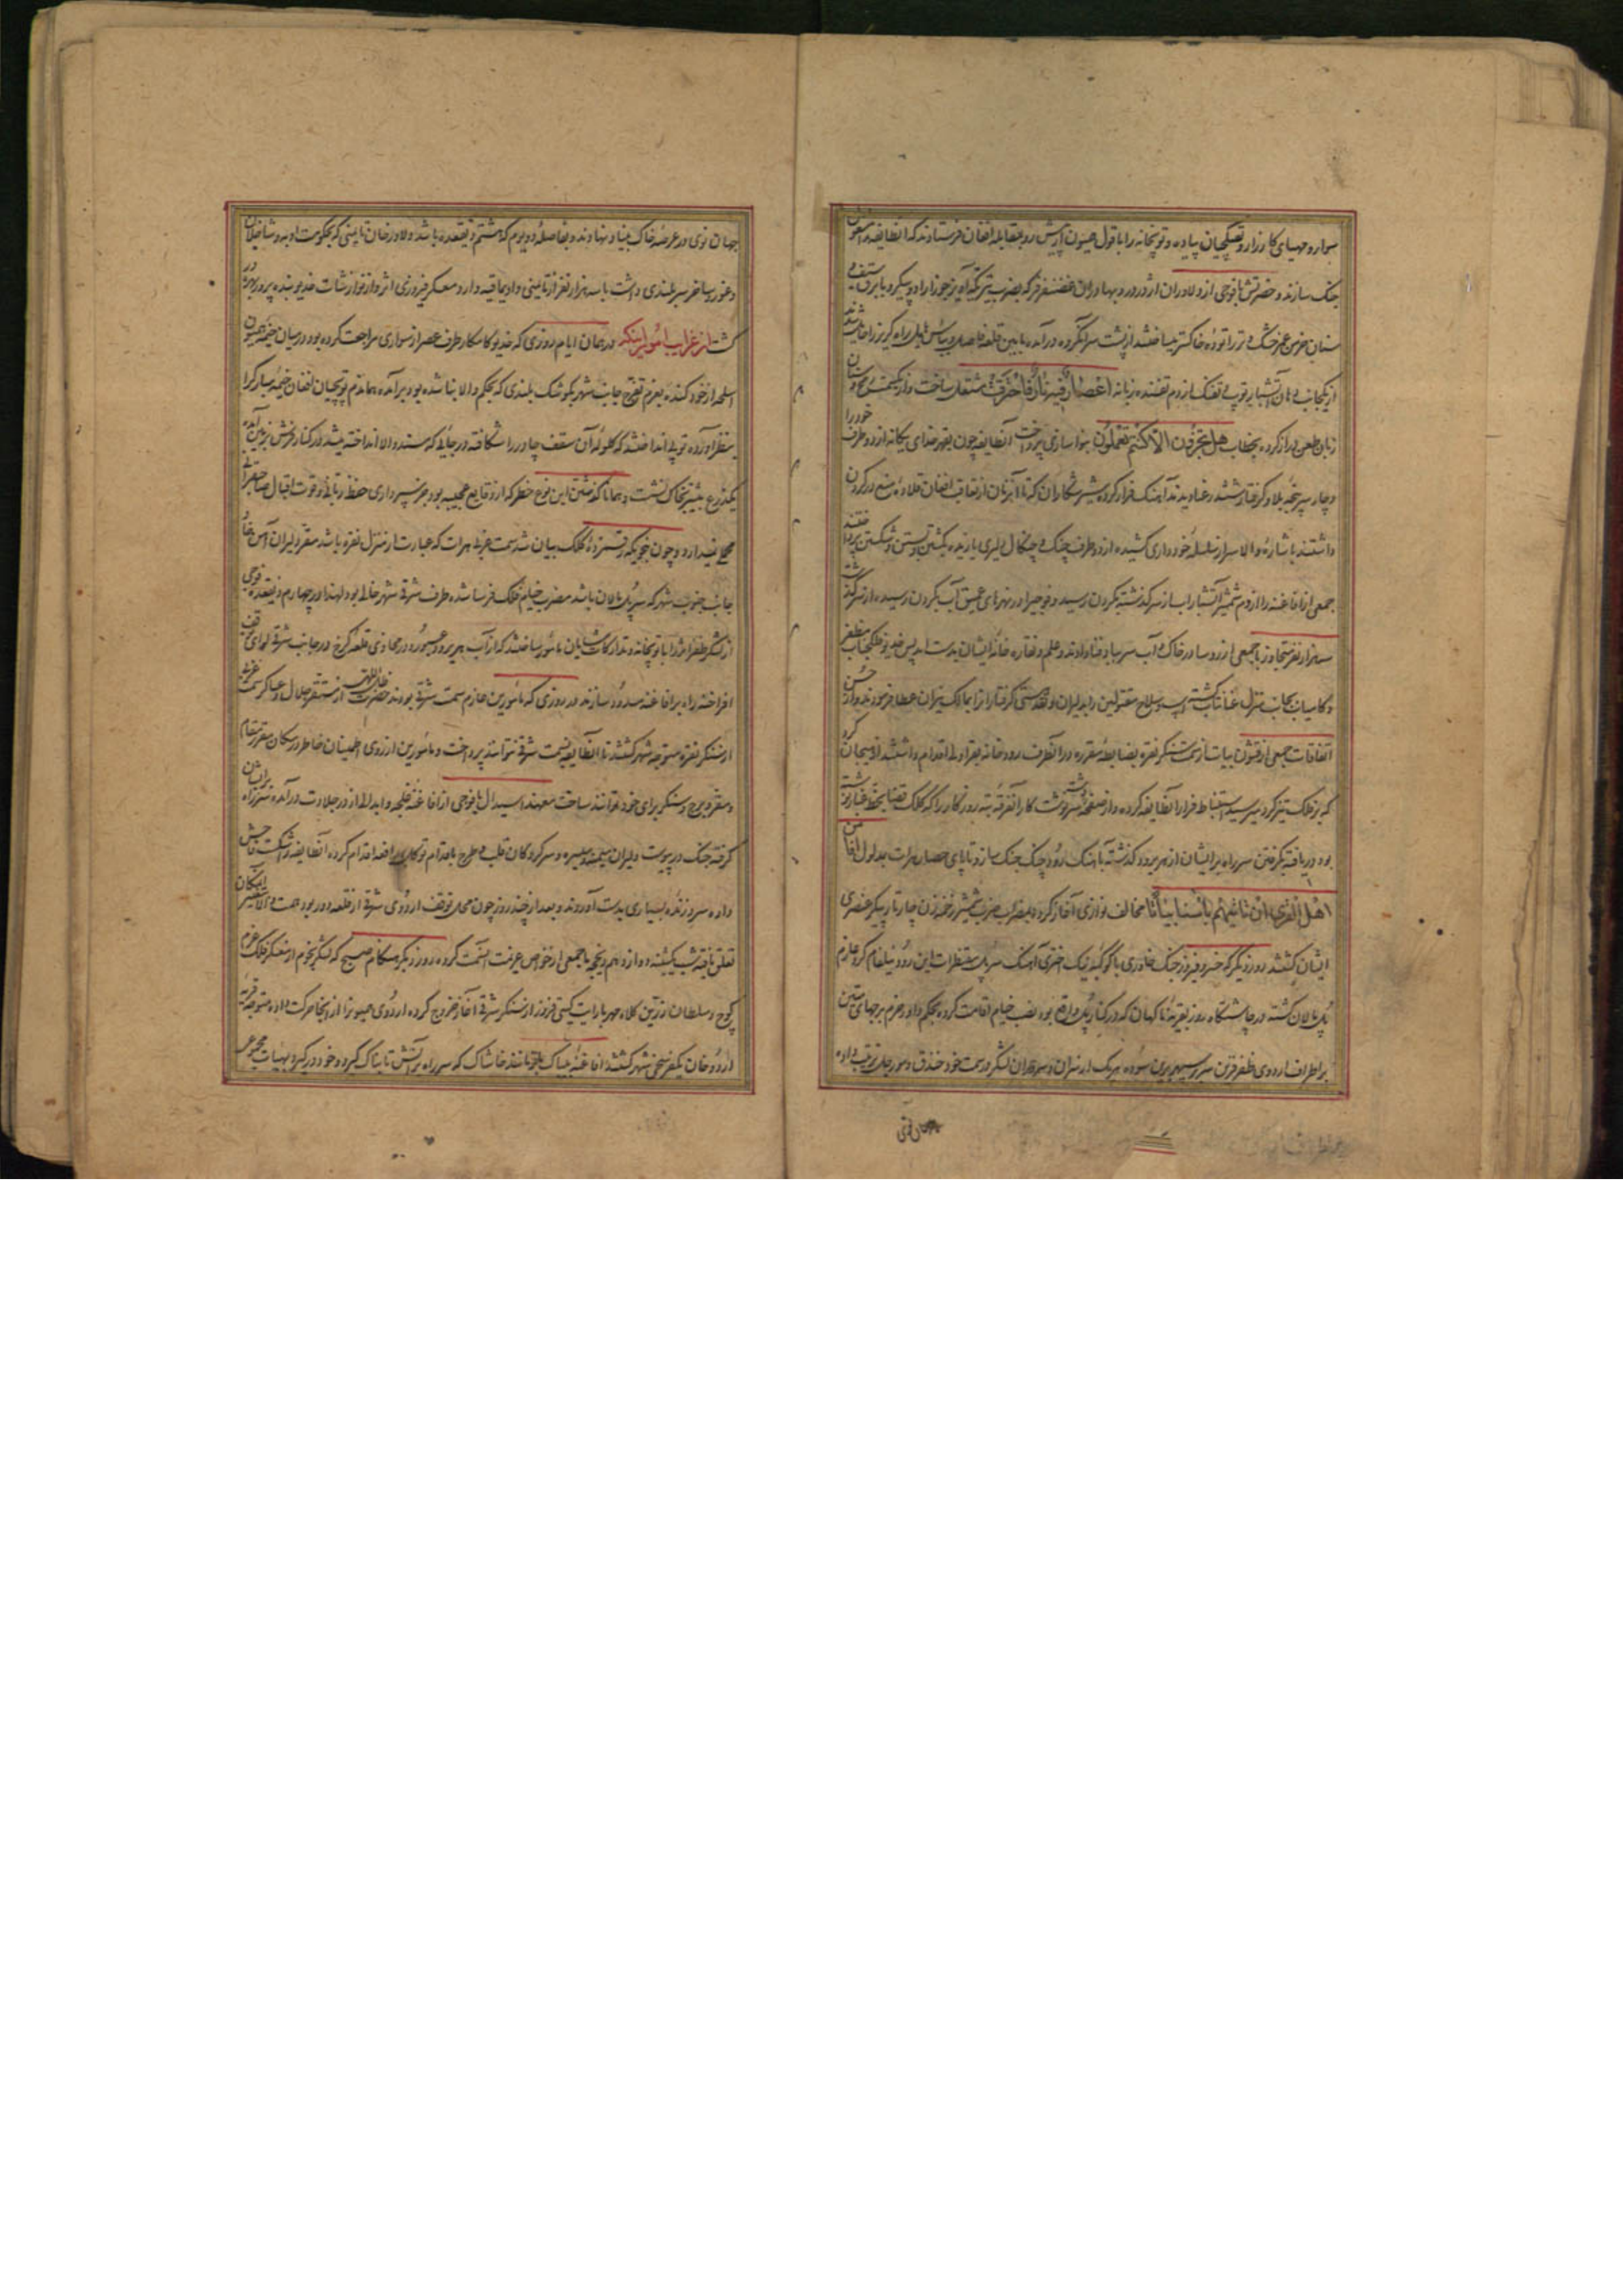 سوار و مهیای کارزار و تفنگچیان پیاده و توپخانه را با قول همیون از پیش رو بمقابله افغان فرستادند که آنطایفه را مشغول
جنگ سازند و حضرتش با فوجی از دلاوران اژدر در و بهادران غضنفر فر که بضرب تیر
سنان خرمن عمر خنک و تر را توده خاکستر میساختند از پشت سر آنگروه درآمده مابین قلعه فاصله و
از یکجانب دهان آتشبار توپ و تفنگ از دم تفنده زبانه اعصار فیه نار فاحترقت مشتعل ساخت و از یکسمت
زبان طعن دراز کرده بخطاب هل تجزون الا ما کنتم تعملون نواسازی پرداخت آنطایفه چون بقهر خدای یگانه از دو طرف خود را
دچار سرپنجه بلا و گرفتار ششدر عنا دیدند آهنگ فرار کرده شیر شکاران که تا آنزمان از تعاقب افغان قلاده منع در گردن
داشتند باشاره والا سر از سلسله خودداری کشیده از دو طرف چنگ و چنگال دلیری یازیده بکشتن و بستن و شکستن پرداختند
جمعی از افاغنه را از دم شمشیر آتشبار آب از سر گذشته بگردن رسید و فوجیرا در نهرهای عمیق آب بگردن رسیده از سر گذشت
سه هزار نفر متجاوز با جمعی از رؤسا در خاک و آب سر بباد فنا دادند و علم و نقاره خانه ایشان بدست آمد پس خدیو فلک جناب مظفر
و کامیاب بجانب منزل عنانتاب گشته اسب و سلاح مقتولین را بدلیران و نقد هستی گرفتارانرا بمالک نیران عطا فرمودند و از حسن
اتفاقات جمعی از قشون بیات از سمت سنگر نقره بضابطه مقرره در آنطرف رودخانه بقراولی اقدام داشتند از هیجان گرد
که بر فلک تیز گرد میرسید استنباط فرار آنطایفه کرده و از صفحه سرنوشت کار آنفرقه تبه روزگار را که کلک قضا بخط غبار نوشته
بود دریافته بگرفتن سر راه برایشان از هریرود گذشته بآهنگ رود و چنگ جنگ ساز و تا پای حصار هرات بمدلول افامن
اهل القری ان یاتیهم باسنا بیاتا مخالف نوازی آغاز کرده بمضراب ضرب شمشیر زخمه زن چار تار پیکر عنصری
ایشان گشتند روز دیگر که خسرو فیروز جنگ خاوری با کوکبه نیک اختری آهنگ سرپل مقنطرات این رود نیلفام کرد عازم
پل مالان گشته در چاشتگاه روز بقریه ناکهان که در کنار پل واقع بود نصب خیام اقامت کرده بحکم داور حزم برجهای متین
بر اطراف اردوی ظفر قرین سر بسپهر برین سوده هر یک از سران و سرداران لشکر در سمت خود خندق و مورچل ترتیب داده
جهان نوی در عرصه خاک بنیاد نهادند و بفاصله دو یوم که هشتم ذیقعده باشد دلاور خان تایمنی که بحکومت اوبه و شافلان
و غور و ساخر سربلندی داشت با سه هزار نفر از تایمنی و اویماقیه وارد معسکر فیروزی اثر و از نوازشات خدیو بنده پرور بهره ور
گشت از غرایب امور اینکه در همان ایام روزی که خدیو کامکار طرف عصر از سواری مراجعت کرده بود در میان خیمه همیون
اسلحه از خود کنده بعزم تفرج جانب شهر بکوشک بلندی که بحکم والا بنا شده بود برآمده هماندم توپچیان افغان خیمه مبارک را
بنظر آورده توپی انداختند که گلوله آن سقف چادر را شکافته در جائی که مسند والا انداخته میشد در کنار فرش بزمین آمده
یکذرع بیشتر بخاک نشست و همانا گذشتن این نوع خطر که از وقایع عجیبه بود جز سپرداری حفظ ربانی و قوت اقبال صاحبقرانی
محملی نمیدارد و چون نحویکه رقمزده کلک بیان شد سمت غربی هرات که عبارت از منزل نقره باشد مقر دلیران آهن خا و
جانب جنوب شهر که سرپل مالان باشد مضرب خیام فلک فرسا شده طرف شرقی شهر خالی بود لهذا در چهاردهم ذیقعده فوجی
از لشکر ظفر اثر را با توپخانه و تدارکات شایان مأمور ساختند که از آب هریرود عبور و در محاذی قلعه کرخ در جانب شرقی لوای توقف
افراخته راه بر افاغنه مسدود سازند در روزی که مأمورین عازم سمت شرقی بودند حضرت ظل اللهی از مستقر جلال و عساکر سمت غربی
از سنگر نقره متوجه شهر گشتند تا آنطایفه بسمت شرقی نتوانند پرداخت و مأمورین از روی اطمینان خاطر در مکان مقرر مقام
و مقر و برج و سنگر برای خود توانند ساخت معهذا سیدال با فوجی از افاغنه غلیجه و ابدالی از در جلادت درآمده سر راه برایشان
گرفته جنگ در پیوست دلیران میمنه و میسره و سرکردگان قلب و طرح باقدام توکل بمدافعه اقدام کرده آنطایفه را شکست فاحش
داده سر و زنده بسیاری بدست آوردند و بعد از چند روز چون محل توقف اردوی شرقی از قلعه دور بود همت والا بتغییر آن مکان
تعلق یافته شب یکشنبه دوازدهم ذیحجه با جمعی از خواص عزیمت آنسمت کرده روز دیگر هنگام صبح که لشکر انجم از معسکر فلک عزم
کوچ و سلطان زرین کلاه مهر با رایت گیتی فروز از سنگر شرقی آغاز خروج کرده اردوی همیونرا از آنجا حرکت داده متوجه قریه
اردوخان یکفرسخی شهر گشتند افاغنه بیباک مانند خاشاک که سر راه بر آتش تابناک گیرد و خود در گیرد بهیأت مجموعی